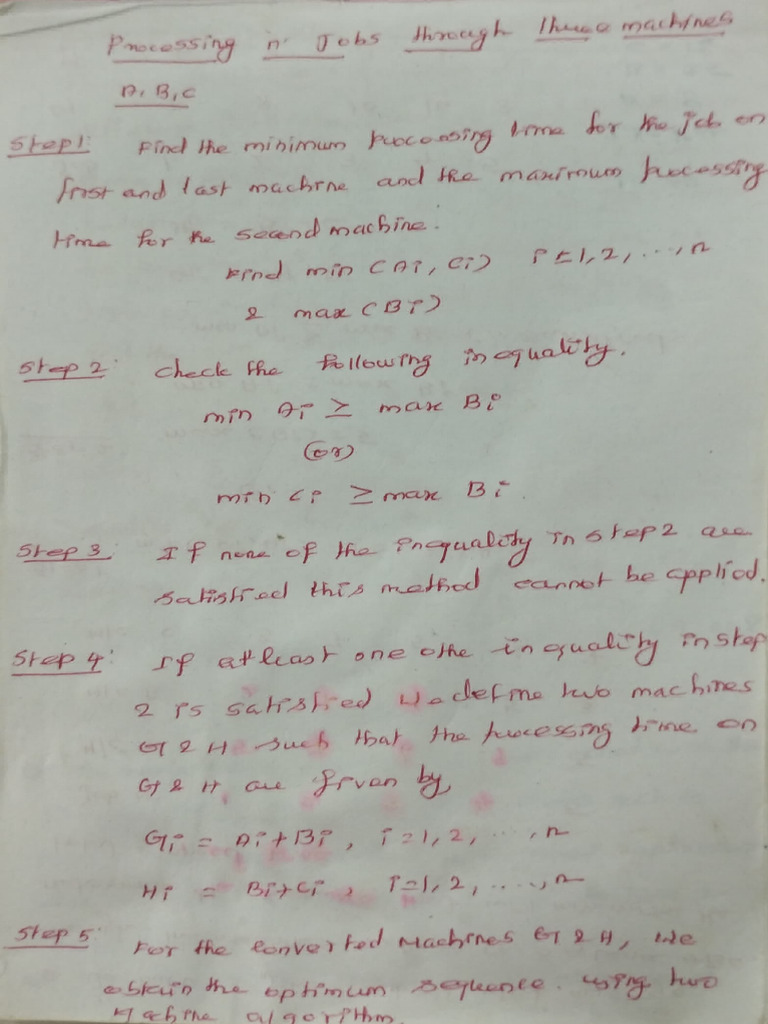 Processing n Jobs through three machines
A, B, C
Step 1: Find the minimum processing time for the job on
first and last machine and the maximum processing
time for the second machine.
Find min (Ai, Ci) i = 1, 2, ..., n
& max (Bi)
Step 2: Check the following inequality.
min Ai ≥ max Bi
(or)
min Ci ≥ max Bi.
Step 3: If none of the inequality in step 2 are
satisfied this method cannot be applied.
Step 4: If atleast one othe inequality in step
2 is satisfied we define two machines
G & H such that the processing time on
G & H are given by,
Gi = Ai + Bi, i = 1, 2, ..., n
Hi = Bi + Ci, i = 1, 2, ..., n
Step 5: For the converted Machines G & H, we
obtain the optimum sequence. using two
Machine algorithm.